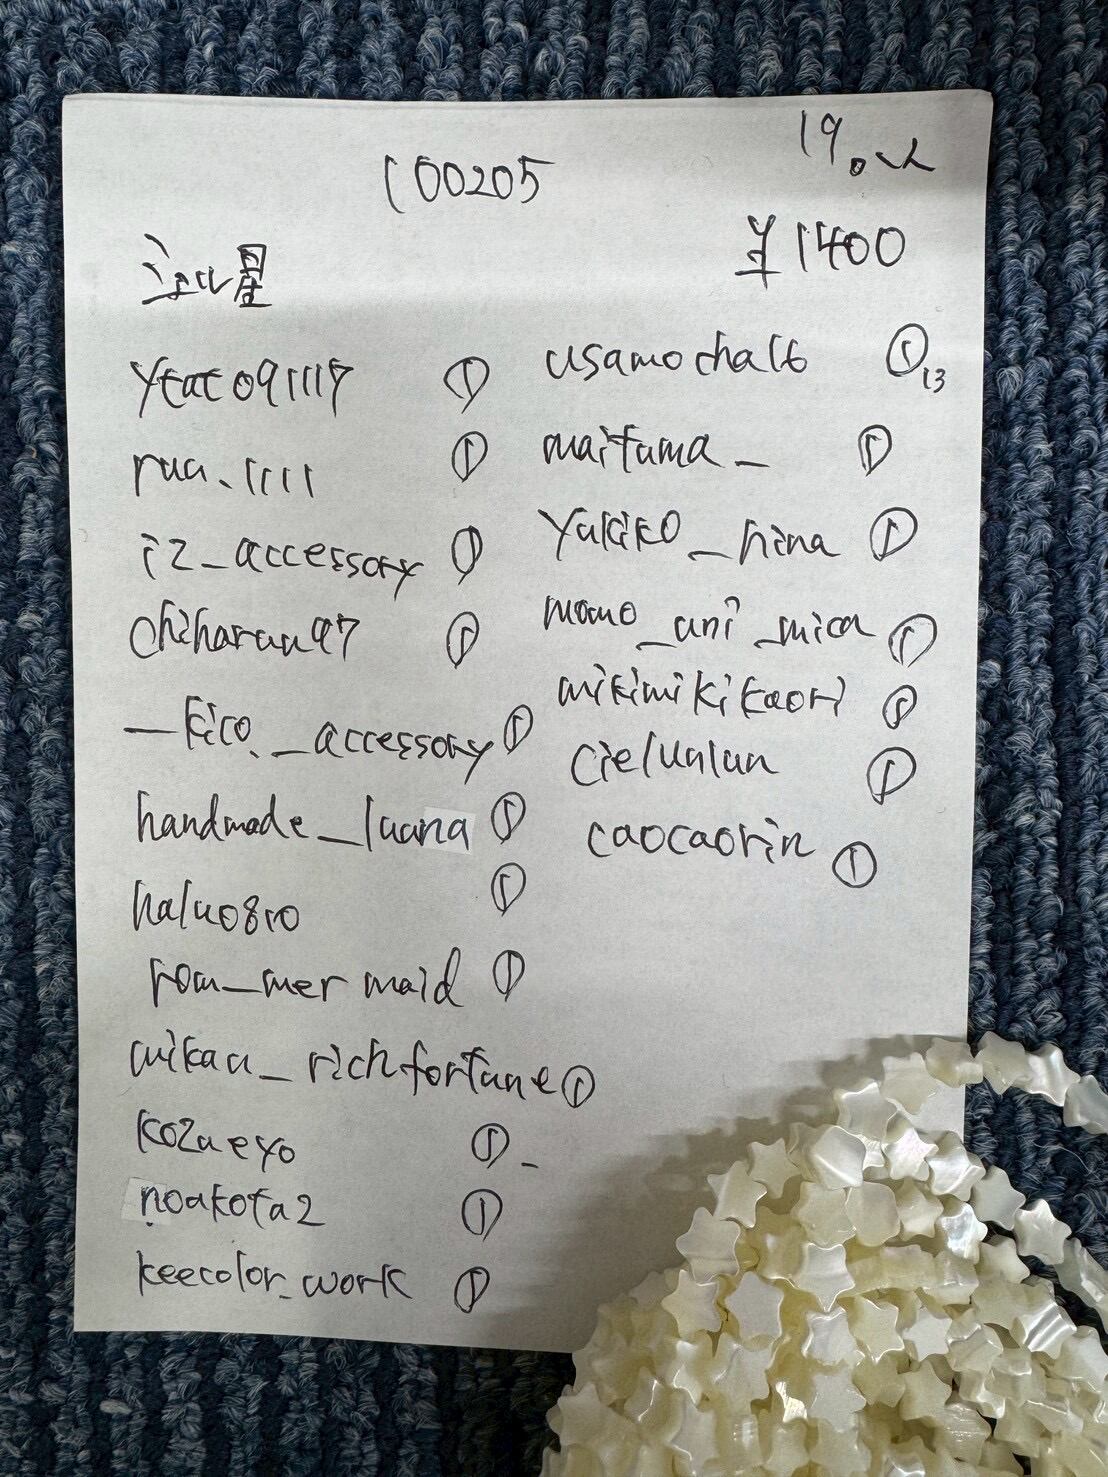 100205
19
¥1400
星
ytato91117 ①
rua.1111 ①
iz_accessory ①
chiharuu97 ①
_kico._accessory ①
handmade_luana ①
halu0810 ①
rom_mermaid ①
mikau_richfortune ①
kozueyo ①
noakota2 ①
keecolor_work ①
usamocha16 ① 13
maituma_ ①
yukiko_hina ①
momo_uni_mica ①
mikimikikaori ①
cielunlun ①
caocaorin ①